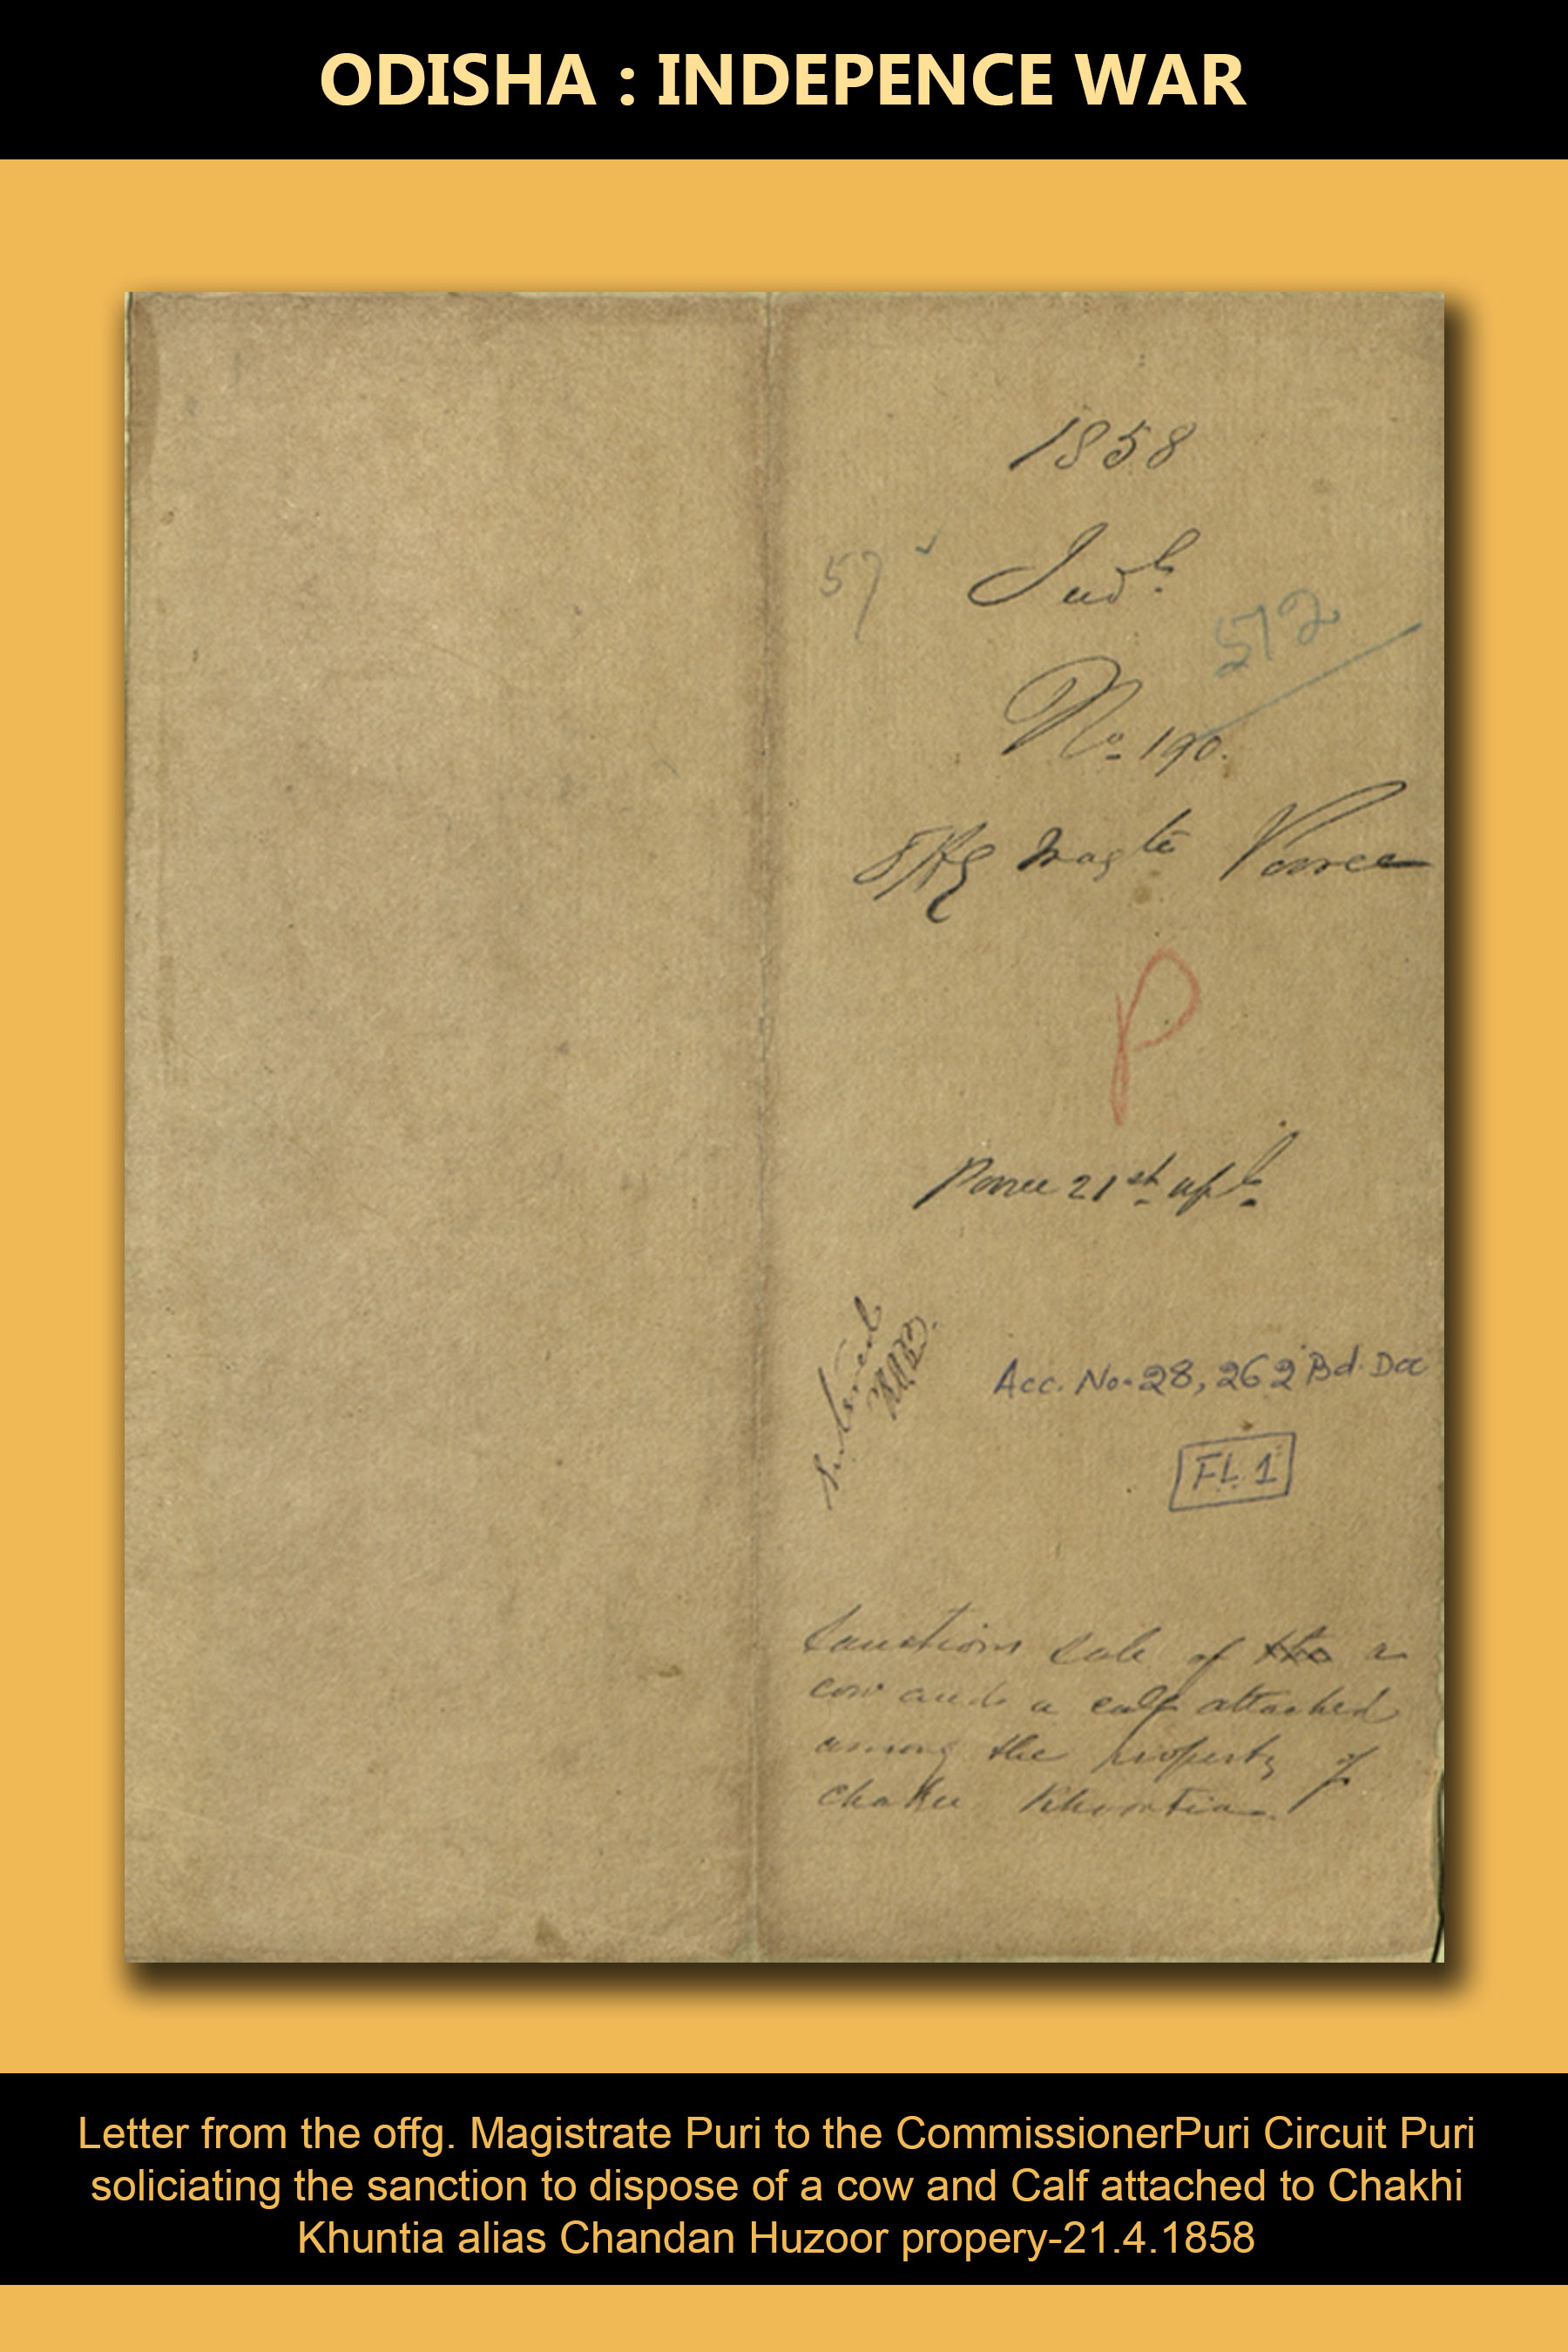 ODISHA : INDEPENCE WAR
1858
57
Judl.
512
No 190.
Magte Pooree
P
Pooree 21st apl.
Acc. No. 28,262 Bd. Doc
FL 1
Sanctions sale of the a
cow and a calf attached
among the property of
Khuntia.
Letter from the offg. Magistrate Puri to the CommissionerPuri Circuit Puri
soliciating the sanction to dispose of a cow and Calf attached to Chakhi
Khuntia alias Chandan Huzoor propery-21.4.1858